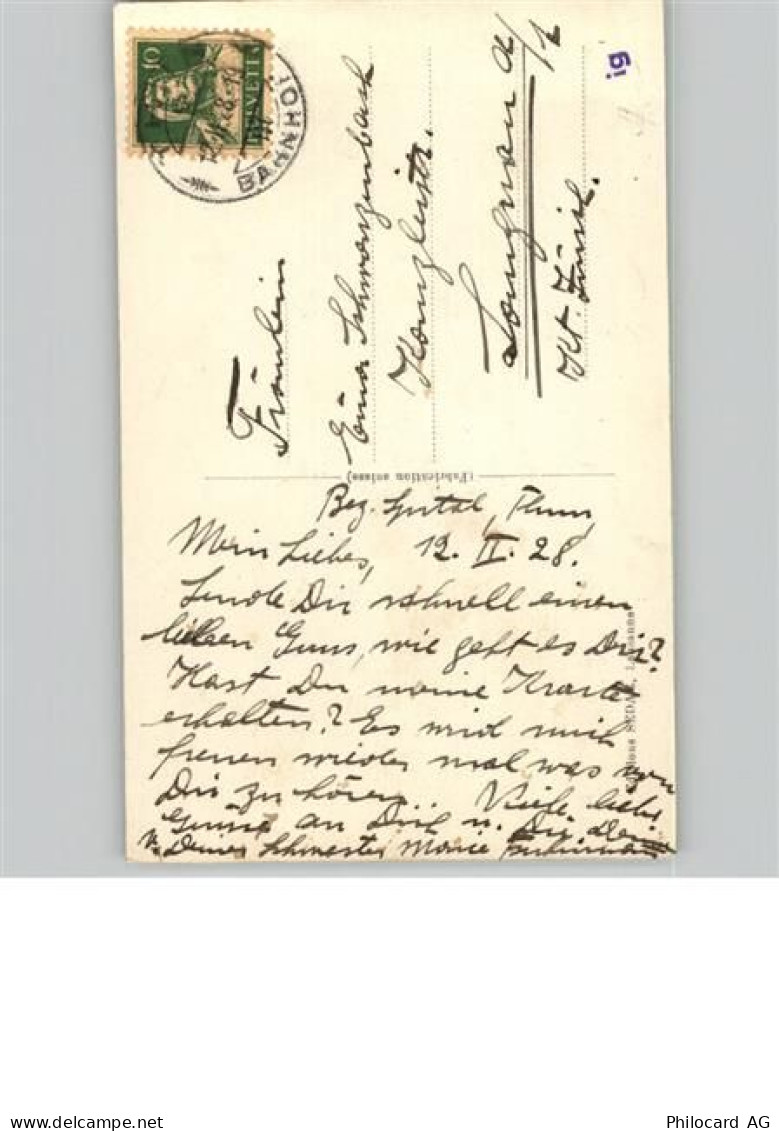 10
HELVETIA
BAHNHOF
ig
Fräulein
Schwarzenbach
Langnau a/
Kt. Zürich.
(Fabrication suisse)
Bez. Spital, Thun,
Mein Liebes, 12. II. 28.
Sende Dir schnell einen
lieben Gruss, wie geht es Dir?
Hast Du meine Karte
erhalten? Es wird mich
freuen wieder mal was von
Dir zu hören. Viele liebe
Grüsse an Dich u. Die Dein
v. Deiner Schwester Marie
SEDA, Lausanne
www.delcampe.net
Philocard AG